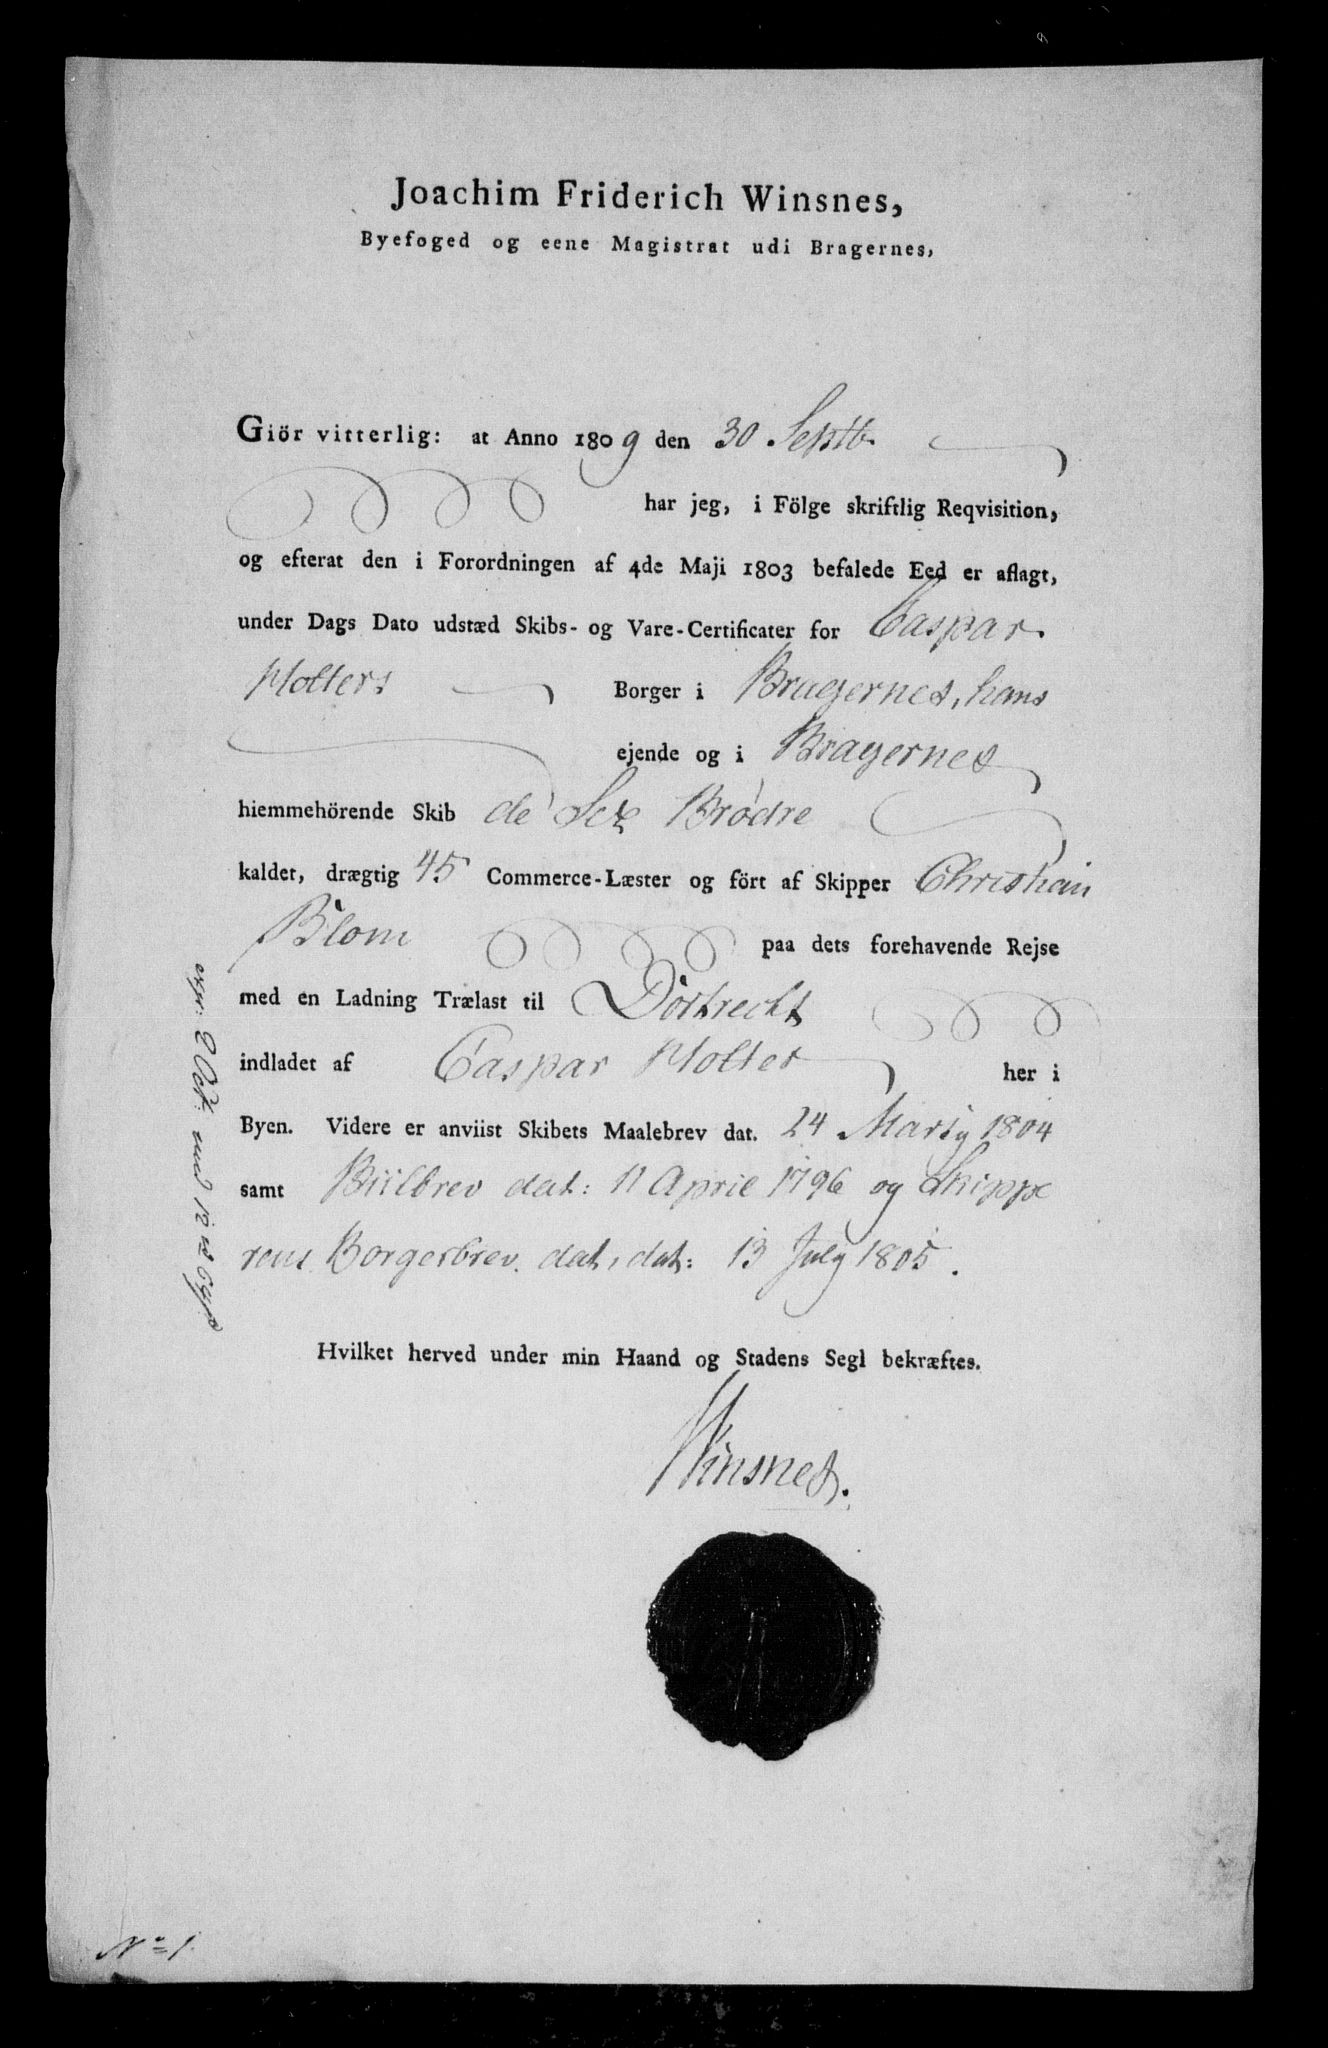 Joachim Friderich Winsnes,
Byefoged og eene Magistrat udi Bragernes,
Giör vitterlig: at Anno 1809 den 30 Septb.
har jeg, i Fölge skriftlig Reqvisition,
og efterat den i Forordningen af 4de Maji 1803 befalede Eed er aflagt,
under Dags Dato udstæd Skibs- og Vare-Certificater for Caspar
Holters Borger i Bragernes, hans
ejende og i Bragernes
hiemmehörende Skib de Sex Brødre
kaldet, drægtig 45 Commerce-Læster og fört af Skipper Christian
Blom paa dets forehavende Rejse
med en Ladning Trælast til Dortrecht
indladet af Caspar Holter her i
Byen. Videre er anviist Skibets Maalebrev dat. 24 Marty 1804
samt Biilbrev dat: 11 April 1796 og Skippe
rens Borgerbrev dat, dat: 13 July 1805.
Hvilket herved under min Haand og Stadens Segl bekræftes.
Winsnes.
expr: 2 Oct:
No 1.